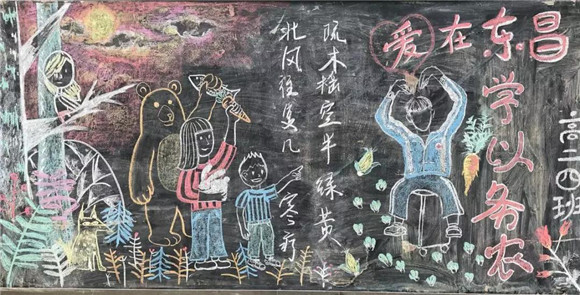 爱在东昌
学以务农
高二四班
疏木摇空半绿黄
北风 几寒